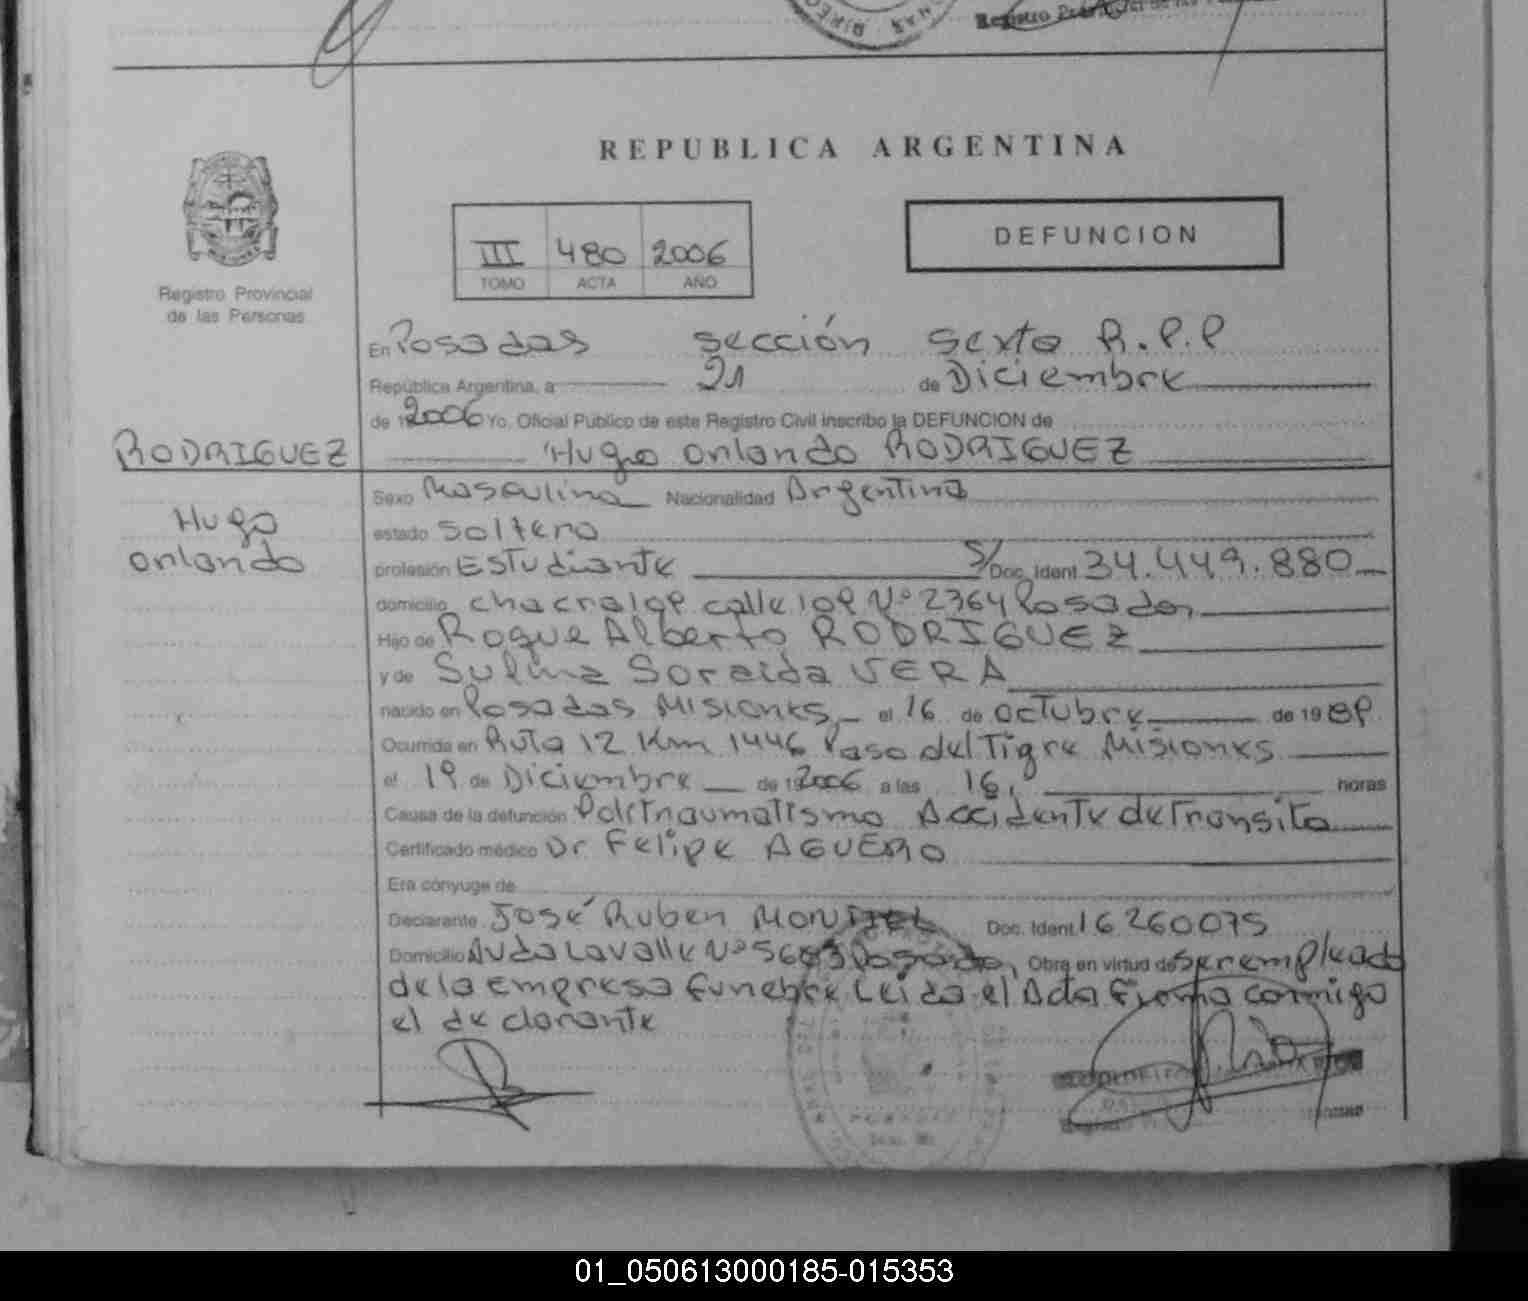 REPUBLICA ARGENTINA
Registro Provincial
de las Personas
III 480 2006
TOMO ACTA AÑO
DEFUNCION
En Posadas sección sexta R.P.P
República Argentina, a 21 de Diciembre
de 2006 Yo, Oficial Público de este Registro Civil inscribo la DEFUNCION de
Hugo Orlando RODRIGUEZ
RODRIGUEZ
Hugo
Orlando
Sexo Masculino Nacionalidad Argentina
estado Soltero
profesión Estudiante S/Doc. Ident 34.449.880
domicilio chacra calle Nº 2364 Posadas
Hijo de Roque Alberto RODRIGUEZ
y de Soraida VERA
nacido en Posadas Misiones el 16 de octubre de 1989
Ocurrida en Ruta 12 Km 1446 Paso del Tigre Misiones
el 19 de Diciembre de 2006 a las 16, horas
Causa de la defunción Politraumatismo Accidente de Transito
Certificado médico Dr Felipe AGUERO
Era cónyuge de
Declarante José Ruben Doc. Ident 16260075
Domicilio Avda Lavalle Nº Posadas, Obra en virtud de ser empleado
de la empresa funebre Leida el Acta firma conmigo
el declarante
01_050613000185-015353